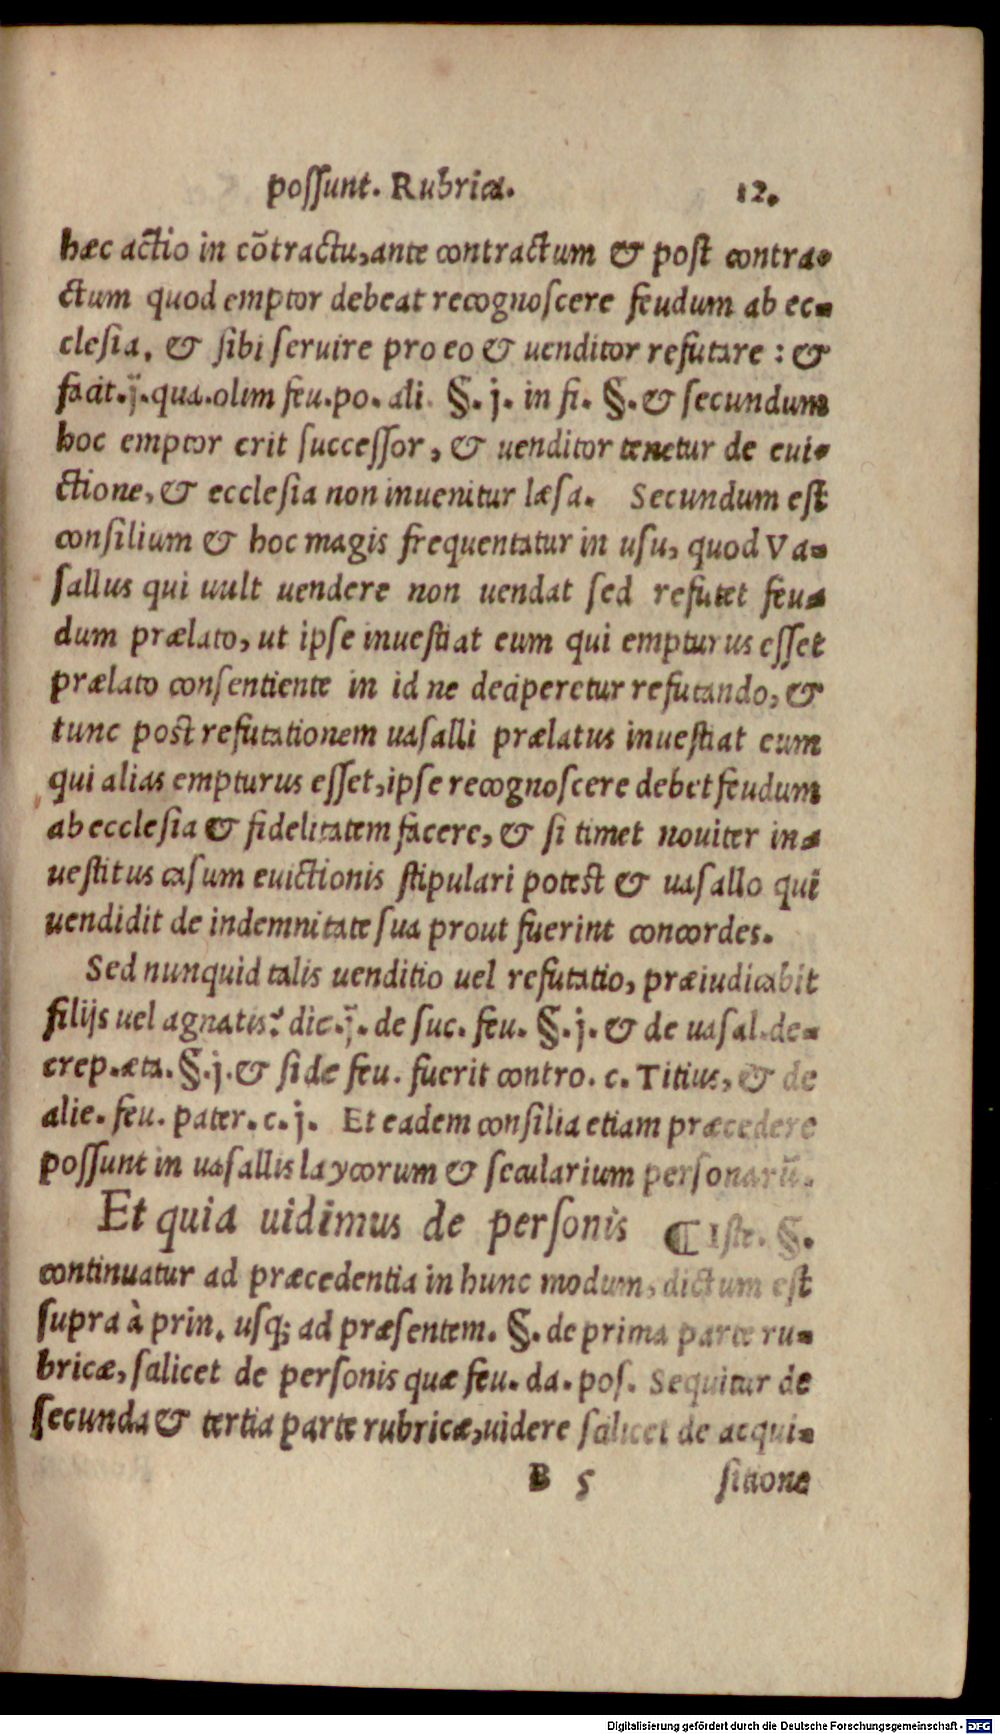 possunt. Rubrica. 12.
hæc actio in cõtractu, ante contractum & post contra-
ctum quod emptor debeat recognoscere feudum ab ec-
clesia, & sibi seruire pro eo & uenditor refutare : &
facit.ij.qua.olim feu.po. ali. §. j. in fi. §. & secundum
hoc emptor erit successor, & uenditor tenetur de eui-
ctione, & ecclesia non inuenitur læsa. Secundum est
consilium & hoc magis frequentatur in usu, quod Va-
sallus qui uult uendere non uendat sed refutet feu-
dum prælato, ut ipse inuestiat eum qui empturus esset
prælato consentiente in id ne deciperetur refutando, &
tunc post refutationem uasalli prælatus inuestiat eum
qui alias empturus esset, ipse recognoscere debet feudum
ab ecclesia & fidelitatem facere, & si timet nouiter in-
uestitus casum euictionis stipulari potest & uasallo qui
uendidit de indemnitate sua prout fuerint concordes.
Sed nunquid talis uenditio uel refutatio, præiudicabit
filijs uel agnatis? dic.ij. de suc. feu. §. j. & de uasal.de-
crep.æta. §.j.& si de feu. fuerit contro. c. Titius, & de
alie. feu. pater. c. j. Et eadem consilia etiam præcedere
possunt in uasallis laycorum & secularium personarũ.
Et quia uidimus de personis ¶ Iste. §.
continuatur ad præcedentia in hunc modum, dictum est
supra à prin. usq; ad præsentem. §. de prima parte ru-
bricæ, scilicet de personis quæ feu. da. pos. Sequitur de
secunda & tertia parte rubricæ, uidere scilicet de acqui-
B 5 sitione
Digitalisierung gefördert durch die Deutsche Forschungsgemeinschaft - DFG